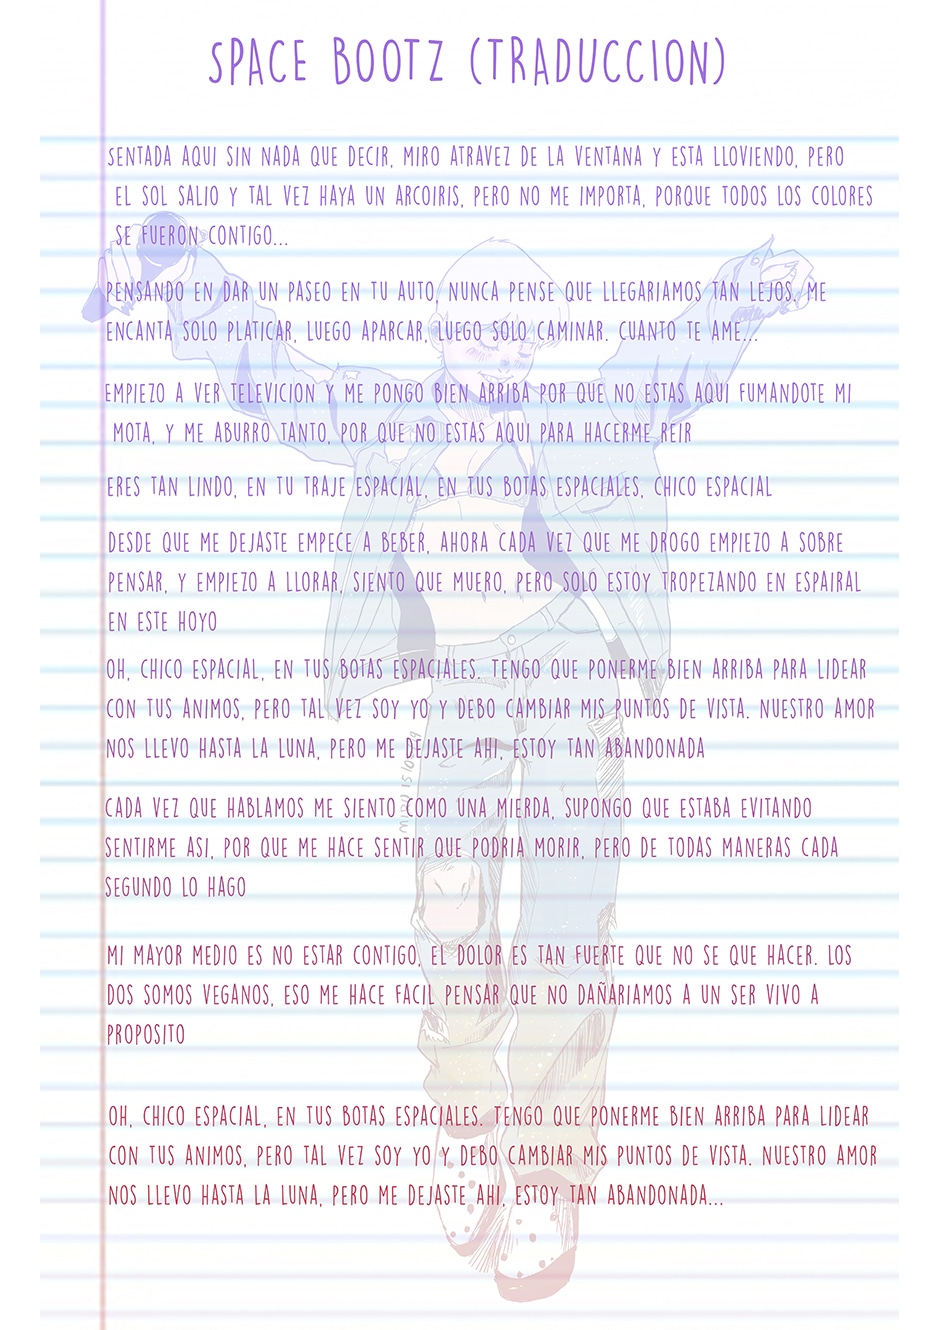 SPACE BOOTZ (TRADUCCION)
SENTADA AQUI SIN NADA QUE DECIR, MIRO ATRAVEZ DE LA VENTANA Y ESTA LLOVIENDO, PERO
EL SOL SALIO Y TAL VEZ HAYA UN ARCOIRIS, PERO NO ME IMPORTA, PORQUE TODOS LOS COLORES
SE FUERON CONTIGO...
PENSANDO EN DAR UN PASEO EN TU AUTO, NUNCA PENSE QUE LLEGARIAMOS TAN LEJOS. ME
ENCANTA SOLO PLATICAR, LUEGO APARCAR, LUEGO SOLO CAMINAR. CUANTO TE AME...
EMPIEZO A VER TELEVICION Y ME PONGO BIEN ARRIBA POR QUE NO ESTAS AQUI FUMANDOTE MI
MOTA, Y ME ABURRO TANTO, POR QUE NO ESTAS AQUI PARA HACERME REIR
ERES TAN LINDO, EN TU TRAJE ESPACIAL, EN TUS BOTAS ESPACIALES, CHICO ESPACIAL
DESDE QUE ME DEJASTE EMPECE A BEBER, AHORA CADA VEZ QUE ME DROGO EMPIEZO A SOBRE
PENSAR, Y EMPIEZO A LLORAR, SIENTO QUE MUERO, PERO SOLO ESTOY TROPEZANDO EN ESPAIRAL
EN ESTE HOYO
OH, CHICO ESPACIAL, EN TUS BOTAS ESPACIALES. TENGO QUE PONERME BIEN ARRIBA PARA LIDEAR
CON TUS ANIMOS, PERO TAL VEZ SOY YO Y DEBO CAMBIAR MIS PUNTOS DE VISTA. NUESTRO AMOR
NOS LLEVO HASTA LA LUNA, PERO ME DEJASTE AHI, ESTOY TAN ABANDONADA
CADA VEZ QUE HABLAMOS ME SIENTO COMO UNA MIERDA, SUPONGO QUE ESTABA EVITANDO
SENTIRME ASI, POR QUE ME HACE SENTIR QUE PODRIA MORIR, PERO DE TODAS MANERAS CADA
SEGUNDO LO HAGO
MI MAYOR MEDIO ES NO ESTAR CONTIGO, EL DOLOR ES TAN FUERTE QUE NO SE QUE HACER. LOS
DOS SOMOS VEGANOS, ESO ME HACE FACIL PENSAR QUE NO DAÑARIAMOS A UN SER VIVO A
PROPOSITO
OH, CHICO ESPACIAL, EN TUS BOTAS ESPACIALES. TENGO QUE PONERME BIEN ARRIBA PARA LIDEAR
CON TUS ANIMOS, PERO TAL VEZ SOY YO Y DEBO CAMBIAR MIS PUNTOS DE VISTA. NUESTRO AMOR
NOS LLEVO HASTA LA LUNA, PERO ME DEJASTE AHI, ESTOY TAN ABANDONADA...